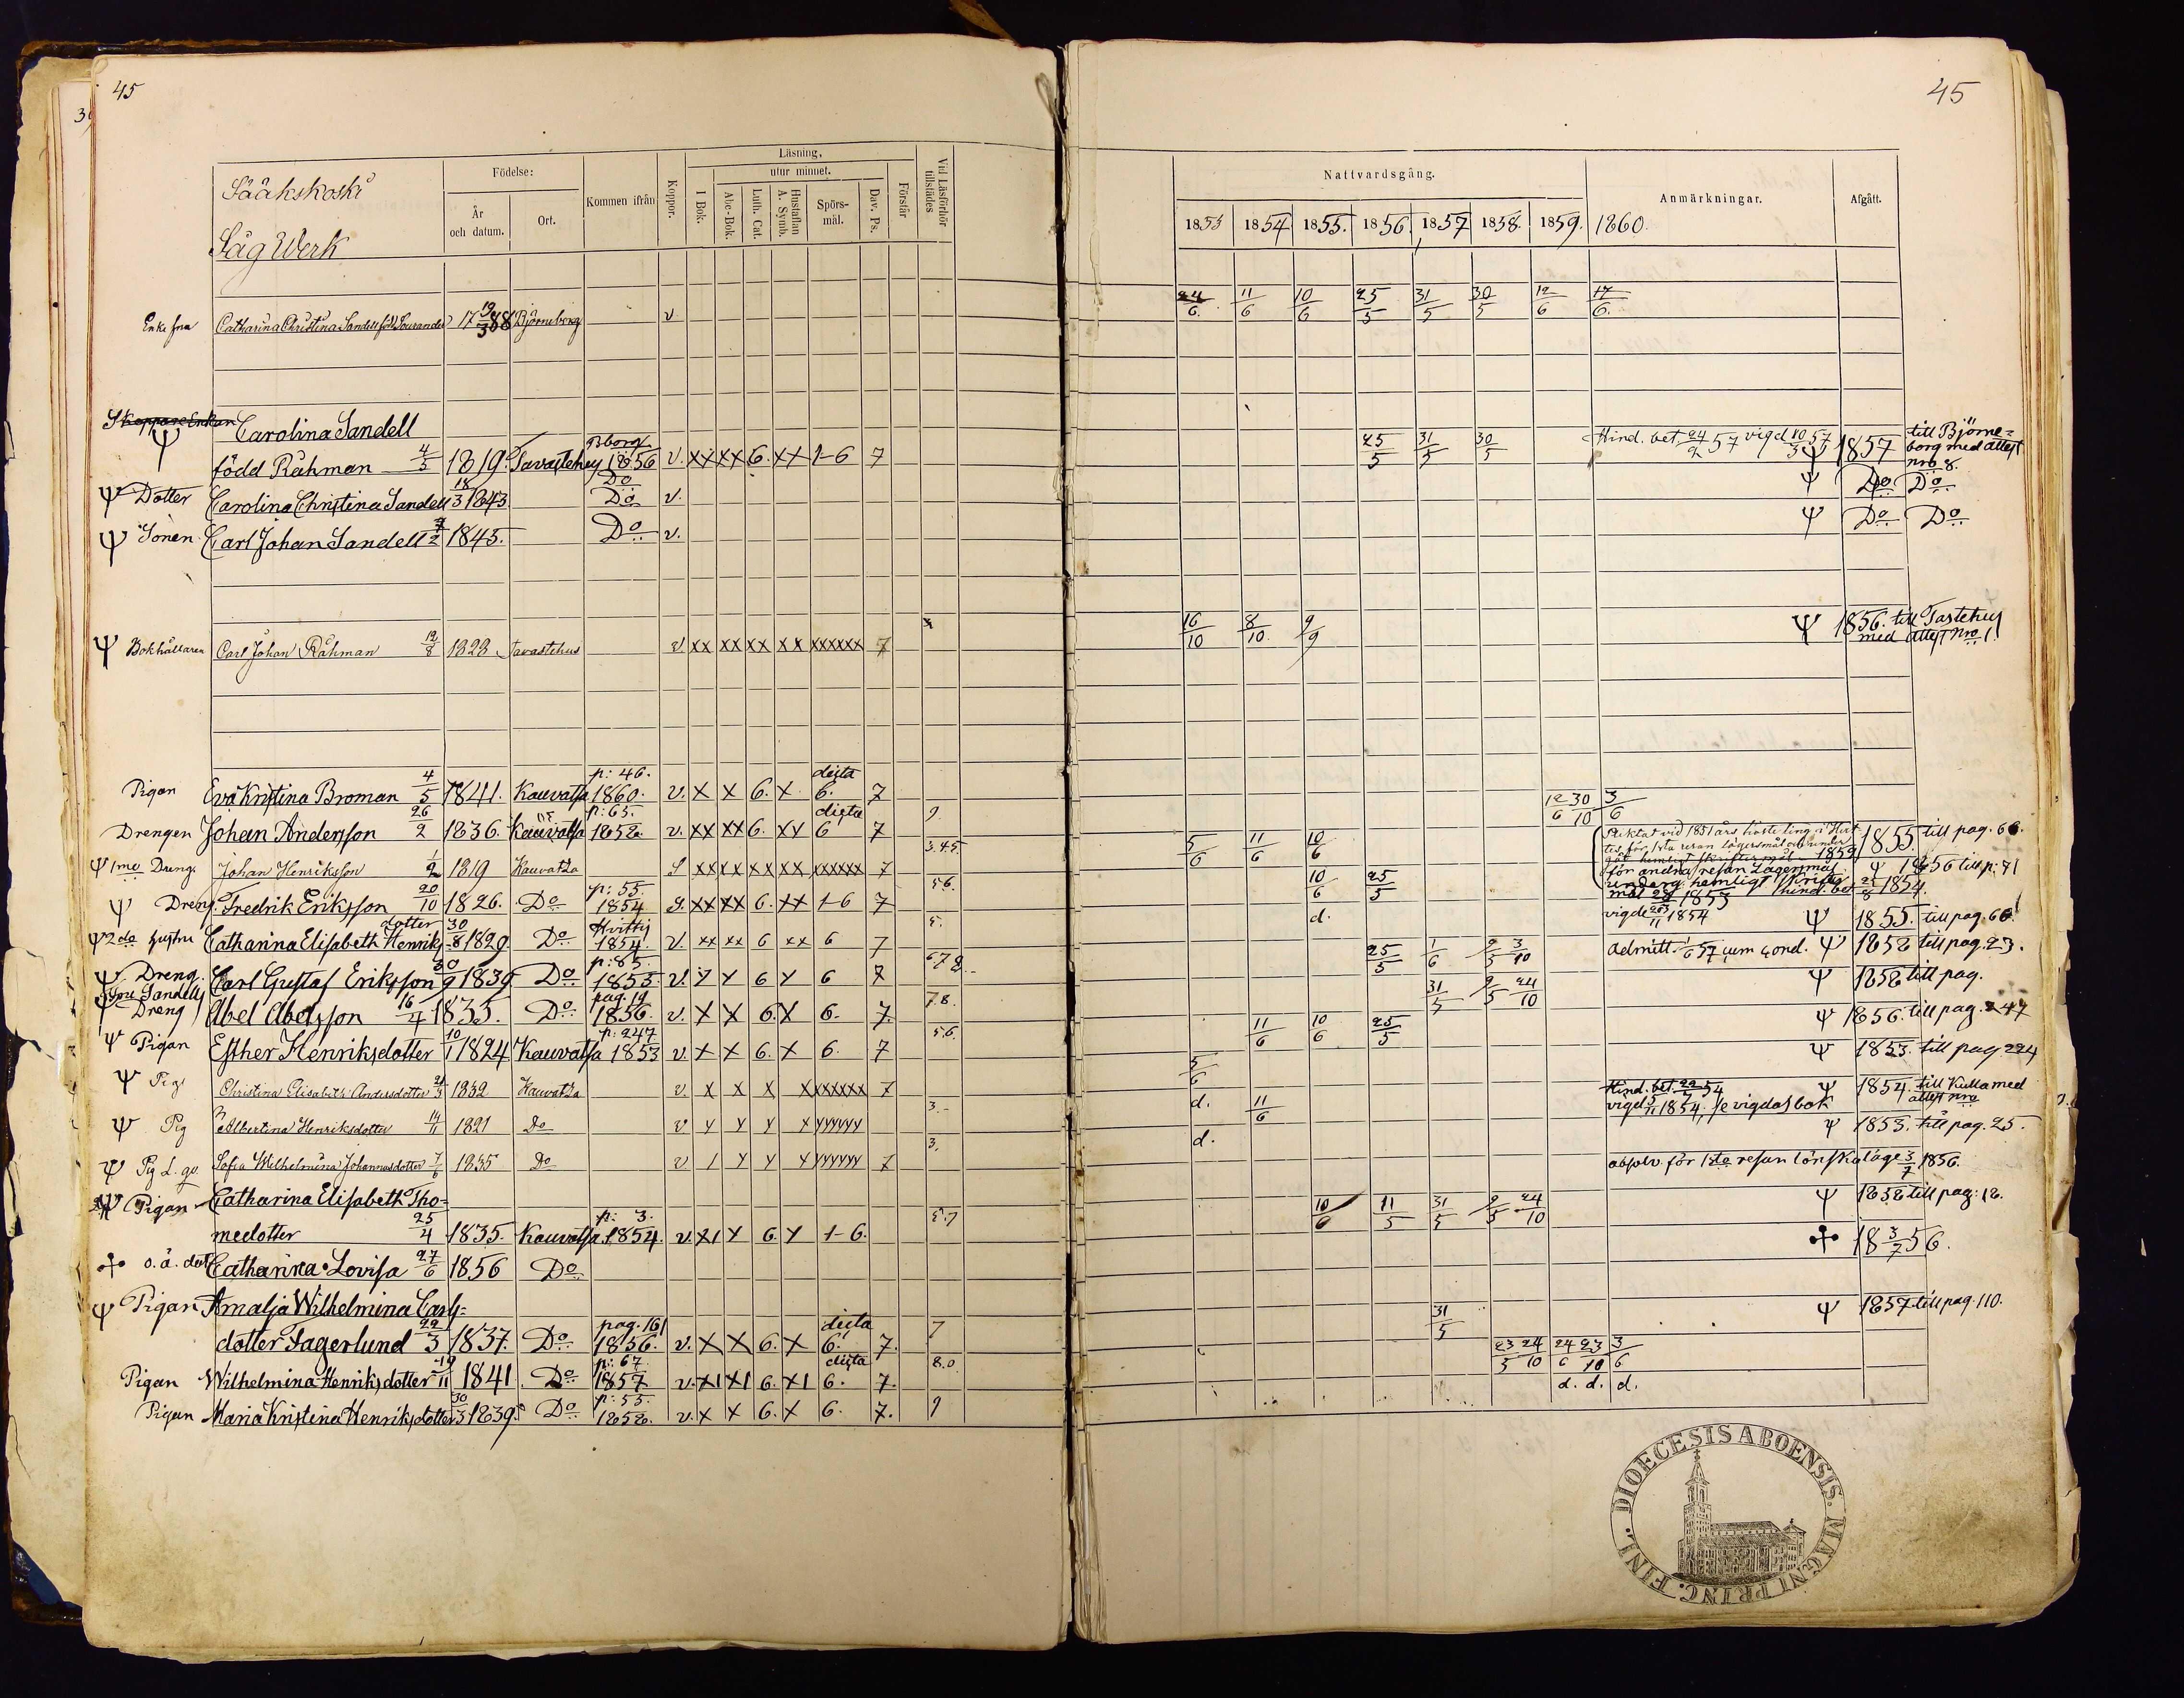 45
45
Sääkskoski
Såg Werk
Födelse:
År och datum.
Ort.
Kommen ifrån
Koppor.
Läsning,
utur minnet.
I Bok.
Abc-Bok.
Luth. Cat.
Hustaflan A. Symb.
Spörs-mål.
Dav. Ps.
Förstår
Vid Läsförhör tillstädes
Nattvardsgång.
1853 1854 1855. 1856. 1857 1858. 1859. 1860.
Anmärkningar.
Afgått.
Enke fru Catharina Christina Sandell född Sourander 17 19/3 88 Björneborg v 24/6 11/6 10/6 25/5 31/5 30/5 12/6 17/6
Skeppare Enkan Carolina Sandell
Bborg
född Råhman 4/5 1819. Tavastehus 1856 v. xx xx 6. xx 1-6 7 25/5 31/5 30/5 Hind. bet. 24/2 57 vigd 10/3 57 Ψ 1857 till Björneborg med attest nro 8.
Ψ Dotter Carolina Christina Sandell 18/3 1843. Do v. Ψ Do Do
Ψ Sonen Carl Johan Sandell 7/2 1845. Do v. Ψ Do Do
Ψ Bokhållaren Carl Johan Råhman 12/8 1828 Tavastehus v xx xx xx xx xxxxxx 7 16/10 8/10 9/9 Ψ 1856. till Tastehus med attest nro 1.
p: 46. dista
Pigan Eva Kristina Broman 4/5 1841. Kauvatsa 1860. v. x x 6. x 6. 7 12/6 30/10 3/6
p: 65. dista 9.
Drengen Johan Andersson 26/2 1836. Kauvatsa 1858. v. xx xx 6. xx 6 7
Ψ 1mo Dreng. Johan Henriksson 1819 Kauvatsa xx xx xx xx xxxxxx 7 3.4.5. 5/6 11/6 10/6 1855. till pag. 66.
p: 55
Ψ Dreng. Fredrik Eriksson 20/10 1826. Do 1854 xx xx 6. xx 1-6 7 5 6. 10/6 25/5 Ψ 1856 till p: 71
för andra resan Lägersmål
vigde 1854
Hvittis
Ψ 2do hustru Catharina Elisabeth Henriksdotter 30/8 1829 Do 1854. v. xx xx 6 xx 6 7 5. d. Ψ 1855. till pag. 66.
p: 85.
Ψ Dreng. Carl Gustaf Eriksson 30/9 1839 Do 1855. v. x x 6 x 6 7 6 7 8 25/5 1/6 2/5 3/10 Admitt. 1/6 57 cum cond. Ψ 1858 till pag. 23.
pag. 19
Ψ Fru Sandells Dreng Abel Abelsson 16/4 1835. Do 1856. v. x x 6. x 6. 7. 7.8. 31/5 2/5 24/10 Ψ 1858 till pag.
p: 247
Ψ Pigan Esther Henriksdotter 10/1 1824 Kauvatsa 1853 v. x x 6. x 6. 7 5 6. 11/6 10/6 25/5 Ψ 1856. till pag. 247
Ψ Pig Christina Elisabeth Andersdotter 1832 Kauvatsa v. x x x x xxxxxx 7 5/6 Ψ 1853. till pag. 224
Ψ Pig Albertina Henriksdotter 14/11 1821 Do v x x x x xxxxxx 3. d. 11/6 Hind. bet. 22 54 vigd 1854, se vigdas bok Ψ 1854. till Kulla med attest nro
Ψ Pig L. qv. Sofia Wilhelmina Johannesdotter 7/6 1835 Do v x x x x xxxxxx 7 3. d. Ψ 1853. till pag. 25.
absolv. för 1sta resan lönskaläge 3/7 1856.
Ψ Pigan Catharina Elisabeth Tho=
p: 3.
medotter 25/4 1835. Kauvatsa 1854. v. x x 6. x 1-6. 5.7 10/6 11/5 31/5 2/5 24/10 Ψ 1858 till pag: 18.
o. ä. dott. Catharina Lovisa 27/6 1856 Do 18 3/7 56.
Ψ Pigan Amalja Wilhelmina Carls=
pag. 161 dista
dotter Fagerlund 22/3 1837. Do 1856. v. x x 6. x 6. 7. 7 31/5 Ψ 1857 till pag. 110.
p: 67. dista
Pigan Wilhelmina Henriksdotter 19/11 1841 Do 1857 v. x x 6. x 6. 7. 8.0 23/5 24/10 24/6 23/10 3/6
p: 55.
Pigan Maria Kristina Henriksdotter 30/3 1839. Do 1858. v. x x 6. x 6. 7. 9 d. d. d.
DIOECESIS ABOENSIS. MAGNI PRINC. FINL.